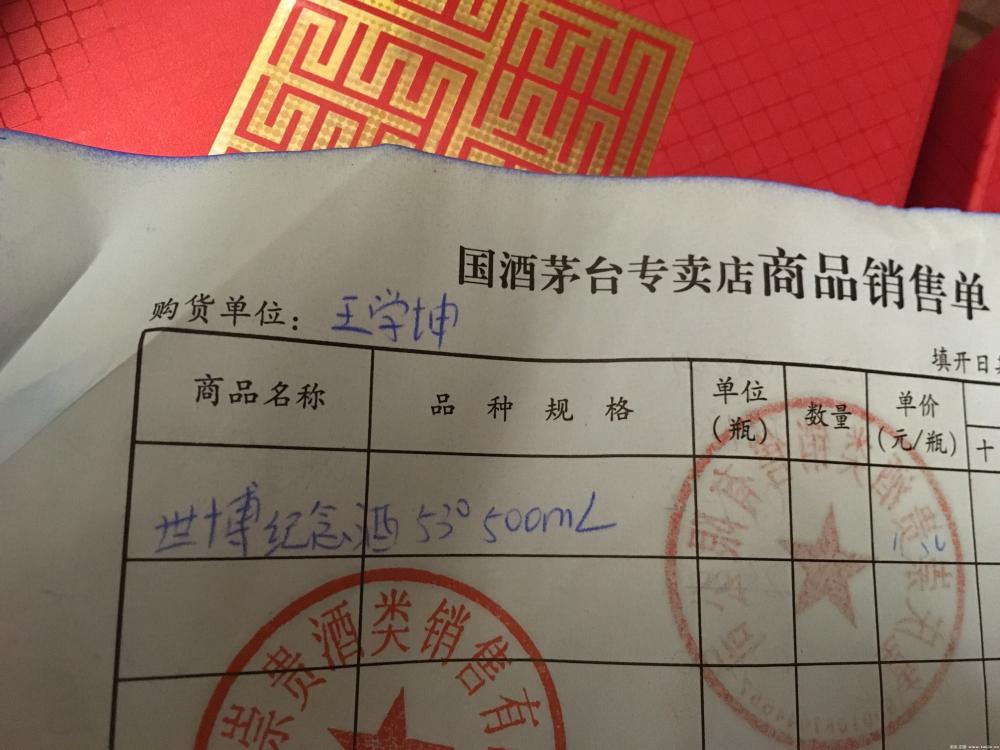 国酒茅台专卖店商品销售单
购货单位：王学坤
填开日
商品名称 品种规格 单位（瓶） 数量 单价（元/瓶） 十
世博纪念酒 53° 500mL
崇贵酒类销售有